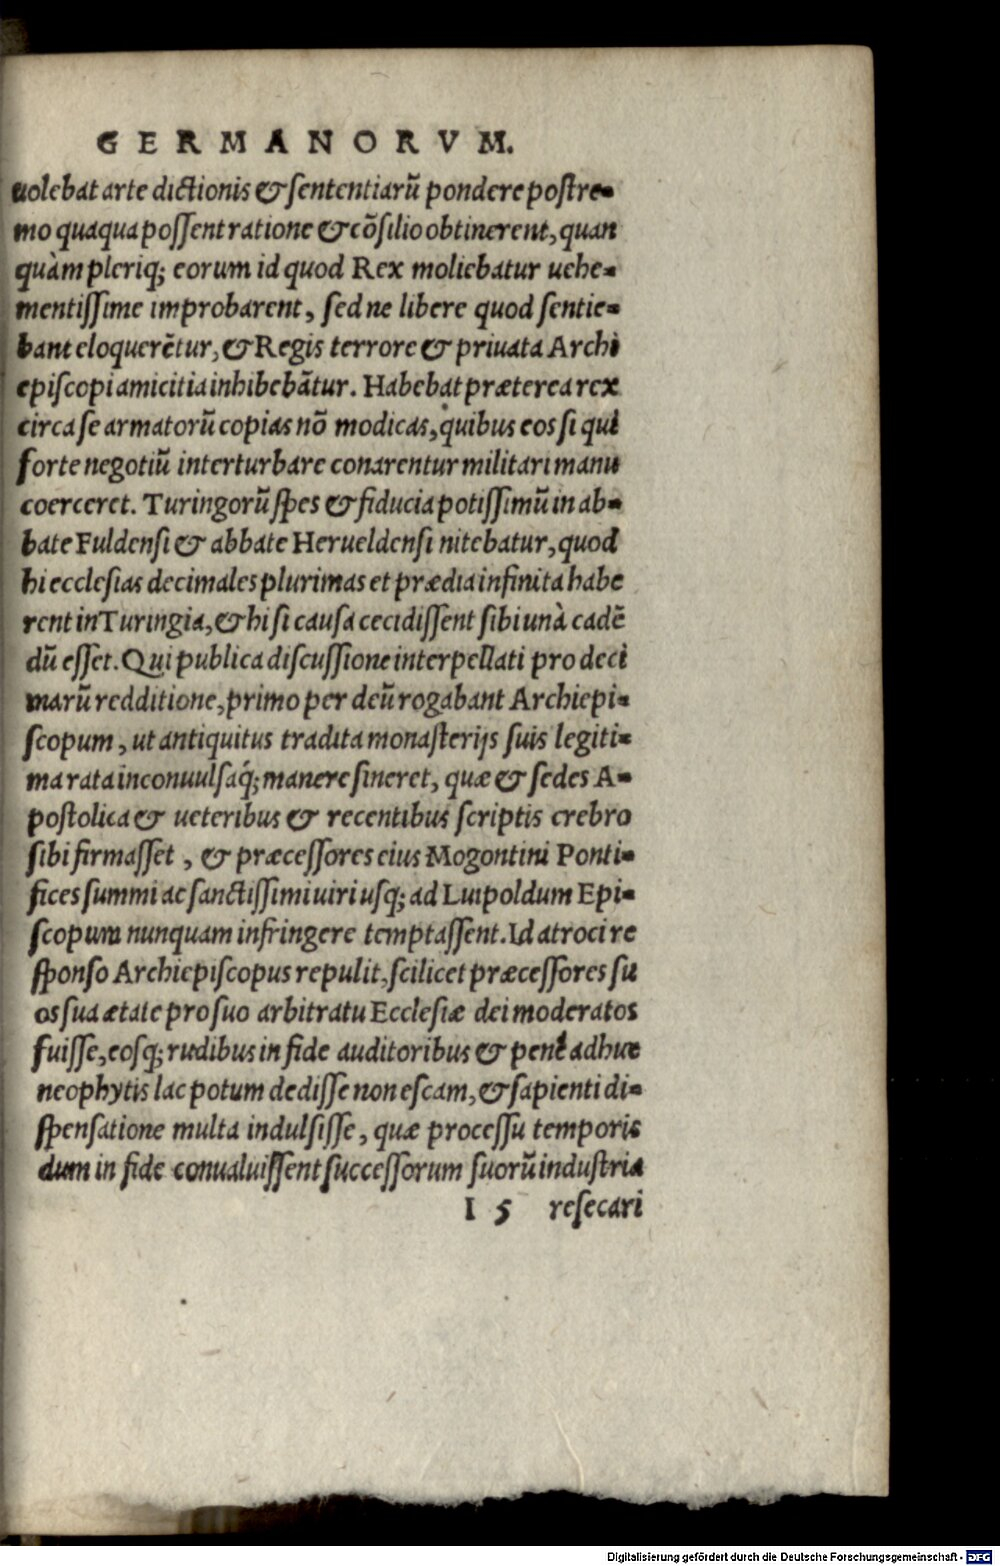 GERMANORVM.
uolebat arte dictionis & sententiarū pondere postre-
mo quaqua possent ratione & cōsilio obtinerent, quan
quàm pleriq; eorum id quod Rex moliebatur uehe-
mentissime improbarent, sed ne libere quod sentie-
bant eloquerētur, & Regis terrore & priuata Archi
episcopi amicitia inhibebātur. Habebat præterea rex
circa se armatorū copias nō modicas, quibus eos si qui
forte negotiū interturbare conarentur militari manu
coerceret. Turingorū spes & fiducia potissimū in ab-
bate Fuldensi & abbate Herueldensi nitebatur, quod
hi ecclesias decimales plurimas et prædia infinita habe
rent in Turingia, & hi si causa cecidissent sibi unà cadē
dū esset. Qui publica discussione interpellati pro deci
marū redditione, primo per deū rogabant Archiepi-
scopum, ut antiquitus tradita monasterijs suis legiti-
ma rata inconuulsaq́; manere sineret, quæ & sedes A-
postolica & ueteribus & recentibus scriptis crebro
sibi firmasset, & præcessores eius Mogontini Ponti-
fices summi ac sanctissimi uiri usq; ad Luipoldum Epi-
scopum nunquam infringere temptassent. Id atroci re
sponso Archiepiscopus repulit, scilicet præcessores su
os sua ætate pro suo arbitratu Ecclesiæ dei moderatos
fuisse, eosq; rudibus in fide auditoribus & penè adhuc
neophytis lac potum dedisse non escam, & sapienti di-
spensatione multa indulsisse, quæ processu temporis
dum in fide conualuissent successorum suorū industria
I 5 resecari
Digitalisierung gefördert durch die Deutsche Forschungsgemeinschaft - DFG